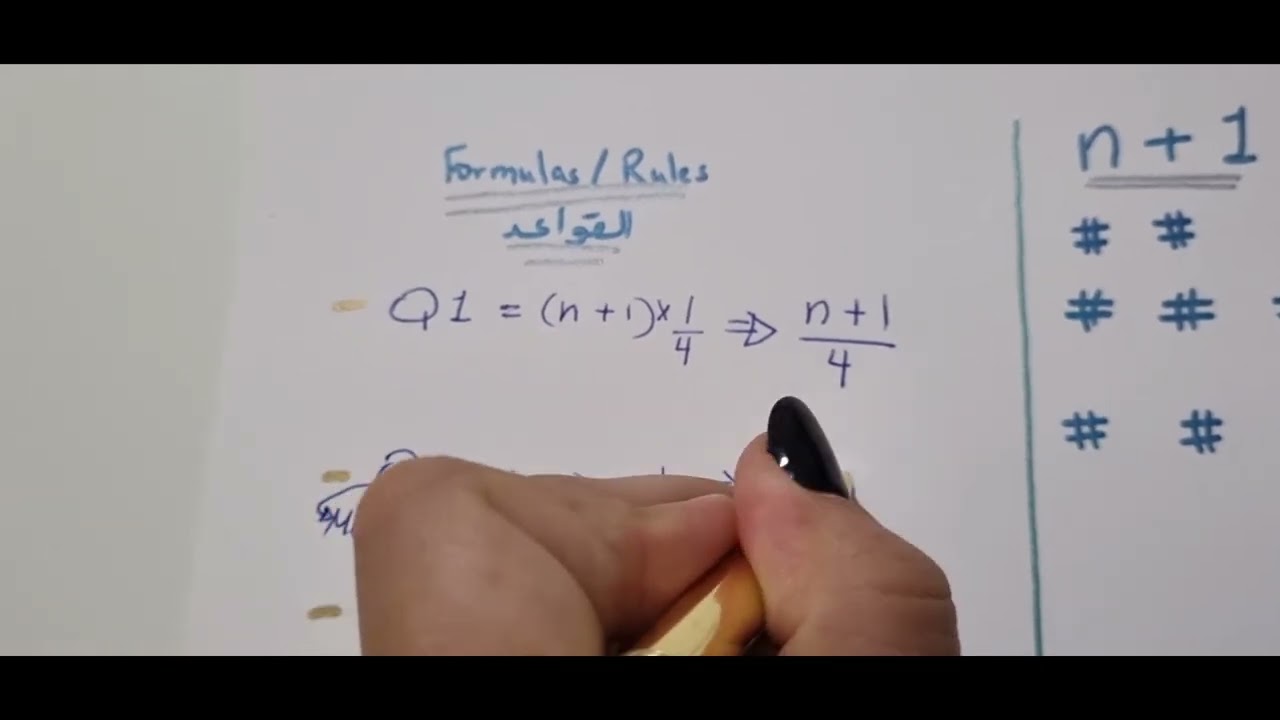 Formulas / Rules
القواعد
- Q1 = (n+1)×1/4 ⇒ n+1/4
n + 1
# #
# #
# #